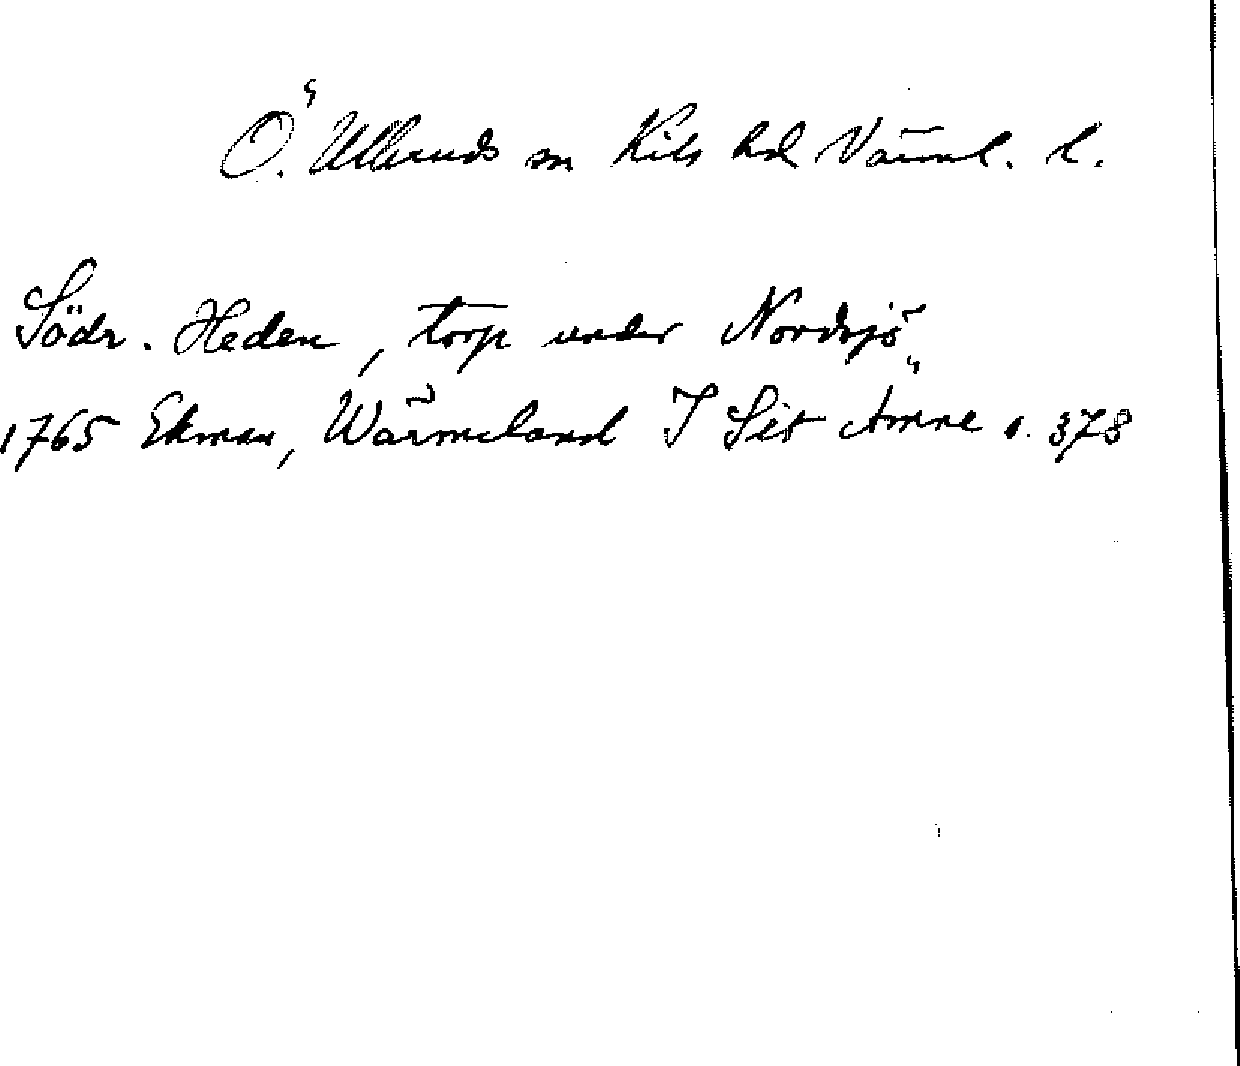 Ö. Ulleruds sn Kils hd Värml. l.
Södr. Heden, torp under Nordsjö
1765 Ekman, Wärmeland I Sit Ämne s. 378